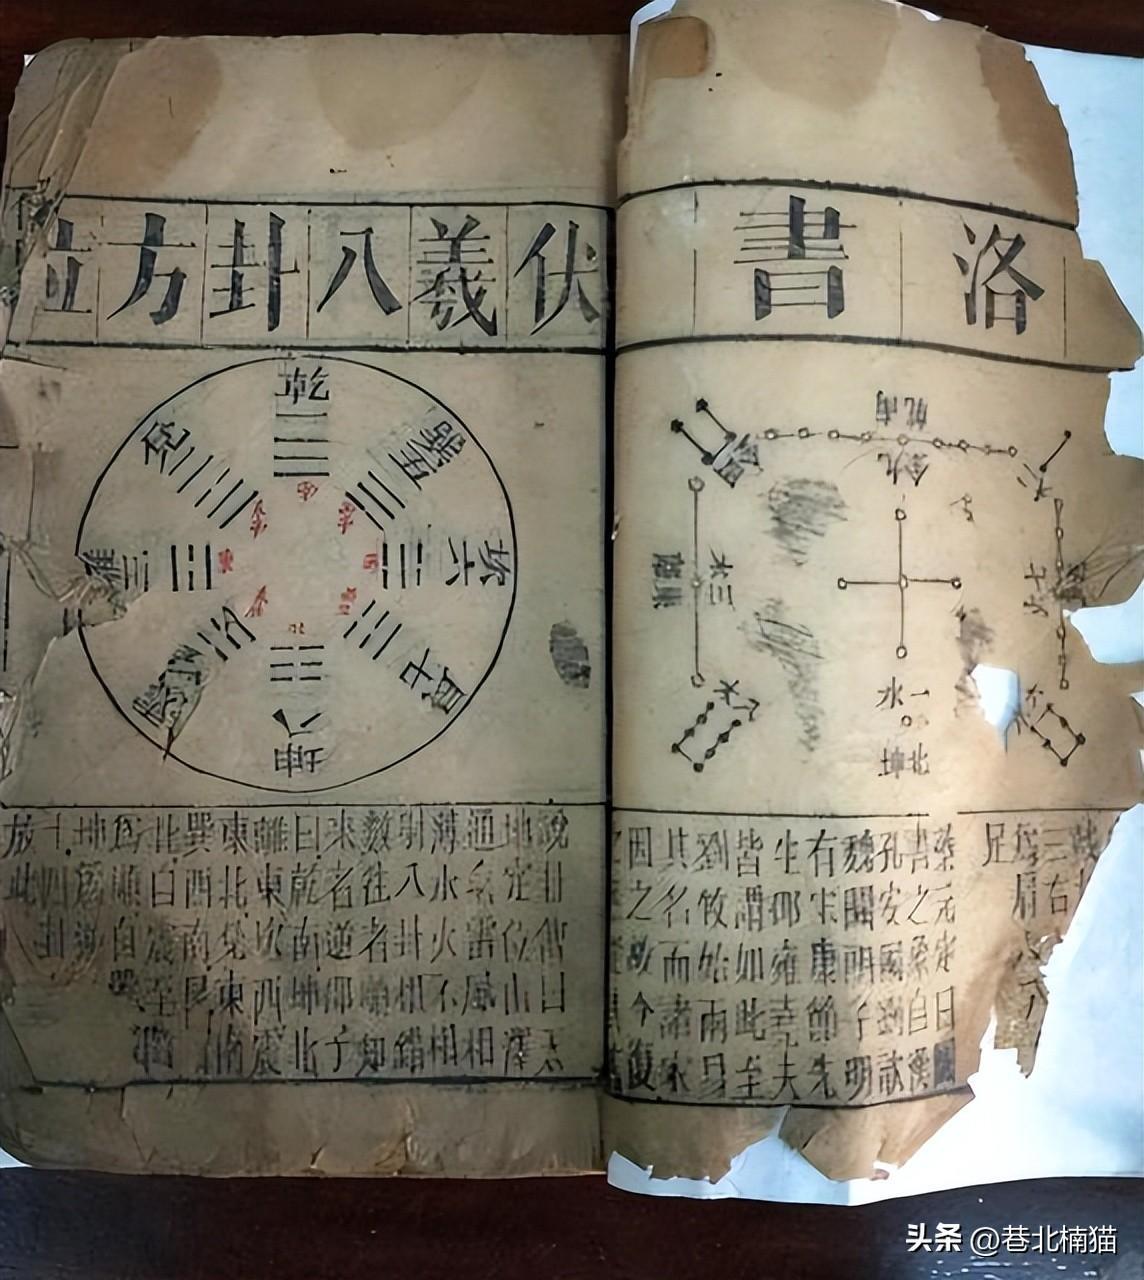 洛書
乾南
金九
木三
火七
水一
北坤
三右
爲肩
足
蔡元定曰圖
書之象自漢
孔安國劉歆
魏關朗子明
有宋康節先
生邵雍堯夫
皆謂如此至
劉牧始兩易
其名而諸家
因之故今復
伏羲八卦方位
乾一
兌二
離三
震四
巽五
坎六
艮七
坤八
說卦傳曰天
地定位山澤
通氣雷風相
薄水火不相
射八卦相錯
數往者順知
來者逆邵子
曰乾南坤北
離東坎西震
東北兌東南
巽西南艮
北自震至
爲順自巽
坤爲逆
十四卦
放此
头条 @巷北楠猫